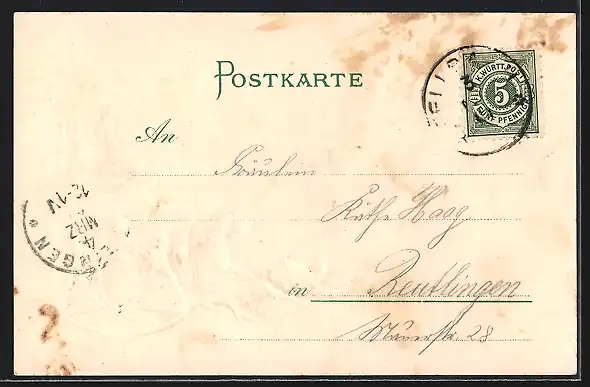 POSTKARTE
K. WÜRTT. POST
5
FÜNF PFENNIG
An
Fräulein
Käthe Haag
in Reutlingen
Mauerstr. 28
12-1 N
4
MRZ
NGEN